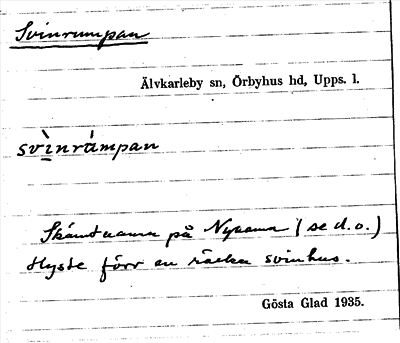 Svinrumpan
Älvkarleby sn, Örbyhus hd, Upps. l.
svìnrámpan
Skämtnamn på Nysama (se d.o.)
Hyste förr en räcka svinhus.
Gösta Glad 1935.